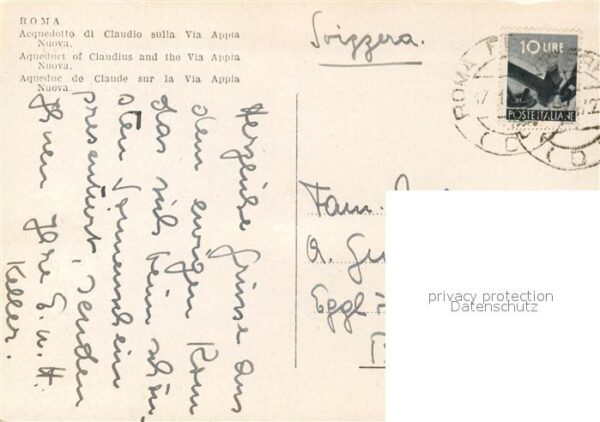 ROMA
Acquedotto di Claudio sulla Via Appia
Nuova.
Aqueduct of Claudius and the Via Appia
Nuova.
Aqueduc de Claude sur la Via Appia
Nuova.
Svizzera.
10 LIRE
POSTE ITALIANE
ROMA
Herzliche Grüsse aus
dem ewigen Rom
das sich beim schön
sten Sonnenschein
präsentiert, senden
Ihnen Ihre E. u. H.
Keller.
Fam.
A. Gu
Eggl
privacy protection
Datenschutz